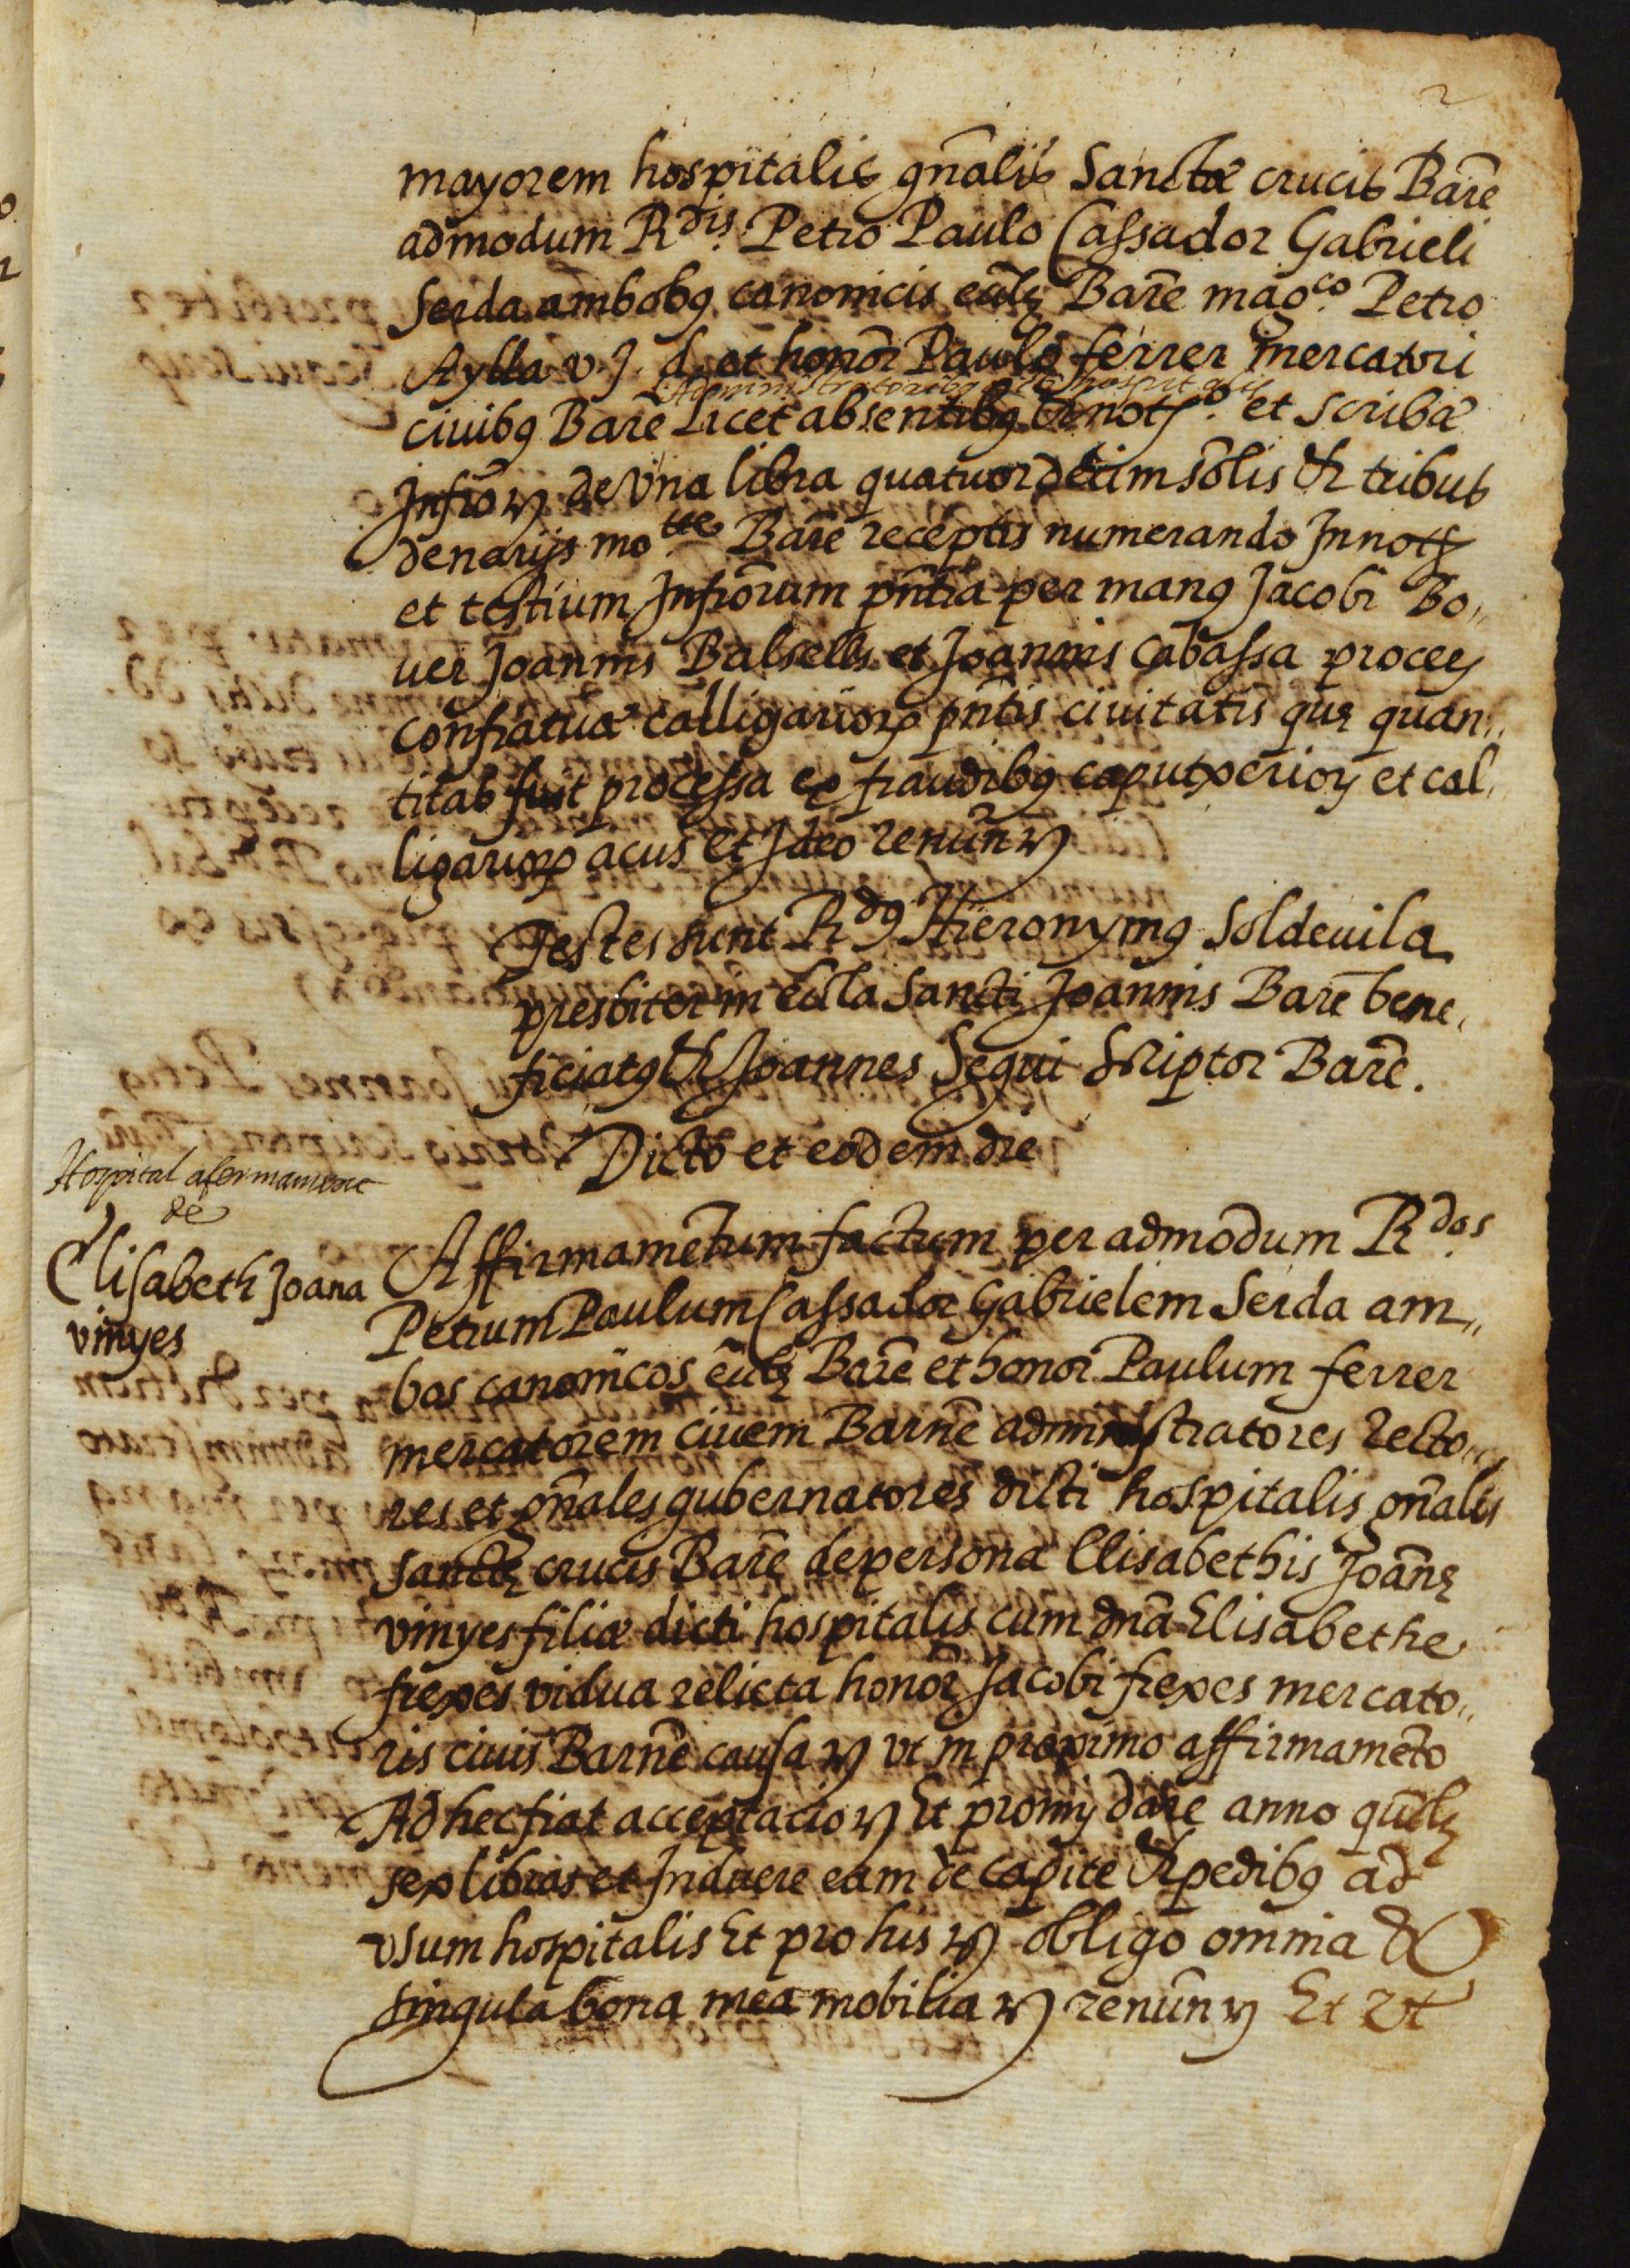 2
mayorem hospitalis gñalis Sanctæ crucis Barñe
admodum R.dis Petro Paulo Cassador Gabrieli
Serda ambobꝯ canonicis eccliæ Barñe mag.co Petro
Aylla v. J. d. et honor Paulo ferrer mercatori
Administratoribꝯ hospitalis
ciuibꝯ Barñe Licet absentibꝯ & not.o et scribæ
Infro &c de vna libra quatuordecim solis & tribus
denarijs mo.tæ Barñe receptis numerando In not
et testium Infrorum pñtia per manꝯ Jacobi Bo,,
uer Joannis Balsells et Joannis Cabassa procer
confratriæ calligariorꝝ pñtis ciuitatis quę quan,,
titas fuit processa ex fraudibꝯ caputxeriorꝝ et cal,
ligariorꝝ acus et Ideo renun &c
Testes sunt R.dꝯ Hieronymꝯ Soldeuila
presbiter in eccla Sancti Joannis Barñe bene,
ficiatꝯ & Joannes Segui Scriptor Barñe.
Dicto et eodem die
Hospital afermament
de
Elisabeth Joana
vinyes
Affirmamẽtum factum per admodum R.dos
Petrum Paulum Cassador Gabrielem Serda am,,
bos canonicos ecclę Barñe et honor Paulum ferrer
mercatorem ciuem Barñe administratores recto,,
res et gñales gubernatores dicti hospitalis gñalis
sanctę crucis Barñe de persona Elisabethis Joanę
vinyes filiæ dicti hospitalis cum dña Elisabethe
frexes vidua relicta honor Jacobi frexes mercato,,
ris ciuis Barñe causa &c vt in proximo affirmamẽto
Ad hec fiat acceptacio &c Et promij dare anno quolę
sex libras et Induere eam de capite & pedibꝯ ad
vsum hospitalis Et pro his &c obligo omnia &
singula bona mea mobilia &c renun &c Et vt